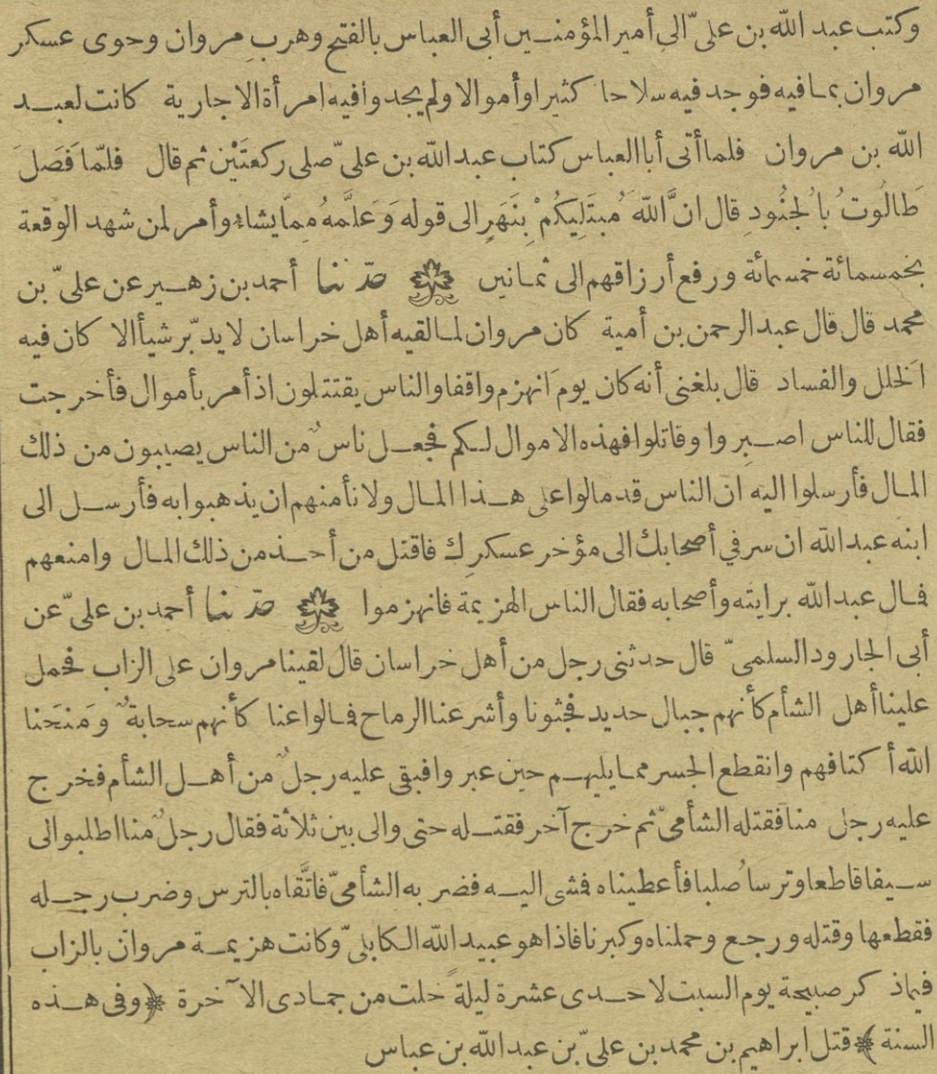 وكتب عبد الله بن علىّ الى أمير المؤمنين أبى العباس بالفتح وهرب مروان وحوى عسكر
مروان بما فيه فوجد فيه سلاحا كثيرا وأموالا ولم يجدوا فيه امرأة الا جارية كانت لعبد
الله بن مروان فلما أتى أبا العباس كتاب عبد الله بن علىّ صلى ركعتَيْن ثم قال فلمّا فَصَلَ
طَالُوتُ بالْجُنُودِ قال انَّ اللّهَ مُبتَلِيكُمْ بِنَهَرٍ الى قوله وَعلَّمهُ ممّا يشاء وأمر لمن شهد الوقعة
بخمسمائة خمسمائة ورفع أرزاقهم الى ثمانين حدّثنا أحمد بن زهير عن علىّ بن
محمد قال قال عبد الرحمن بن أمية كان مروان لما لقيه أهل خراسان لا يدبّر شيأ الا كان فيه
الخلل والفساد قال بلغنى أنه كان يوم انهزم واقفا والناس يقتتلون اذ أمر بأموال فأخرجت
فقال للناس اصبروا وقاتلوا فهذه الاموال لكم فجعل ناسٌ من الناس يصيبون من ذلك
المال فأرسلوا اليه ان الناس قد مالوا على هذا المال ولا نأمنهم ان يذهبوا به فأرسل الى
ابنه عبد الله ان سر في أصحابك الى مؤخر عسكرك فاقتل من أخذ من ذلك المال وامنعهم
فمال عبد الله برايته وأصحابه فقال الناس الهزيمة فانهزموا حدّثنا أحمد بن علىّ عن
أبى الجارود السلمىّ قال حدثنى رجل من أهل خراسان قال لقينا مروان على الزاب فحمل
علينا أهل الشأم كأنهم جبال حديد فجثونا وأشرعنا الرماح فمالوا عنا كأنهم سحابةٌ ومَنحَنا
الله أكتافهم وانقطع الجسر مما يليهم حين عبروا فبقى عليه رجلٌ من أهل الشأم فخرج
عليه رجل منا فقتله الشأمىّ ثم خرج آخر فقتله حتى والى بين ثلاثة فقال رجلٌ منا اطلبوا لى
سيفا قاطعا وترساً صلبا فأعطيناه فمشى اليه فضربه الشأمىّ فاتَّقاه بالترس وضرب رجله
فقطعها وقتله ورجع وحملناه وكبرنا فاذا هو عبيد الله الكابلىّ وكانت هزيمة مروان بالزاب
فيما ذكر صبيحة يوم السبت لاحدى عشرة ليلةً خلت من جمادى الآخرة ﴿وفى هذه
السنة﴾ قتل ابراهيم بن محمد بن علىّ بن عبد الله بن عباس